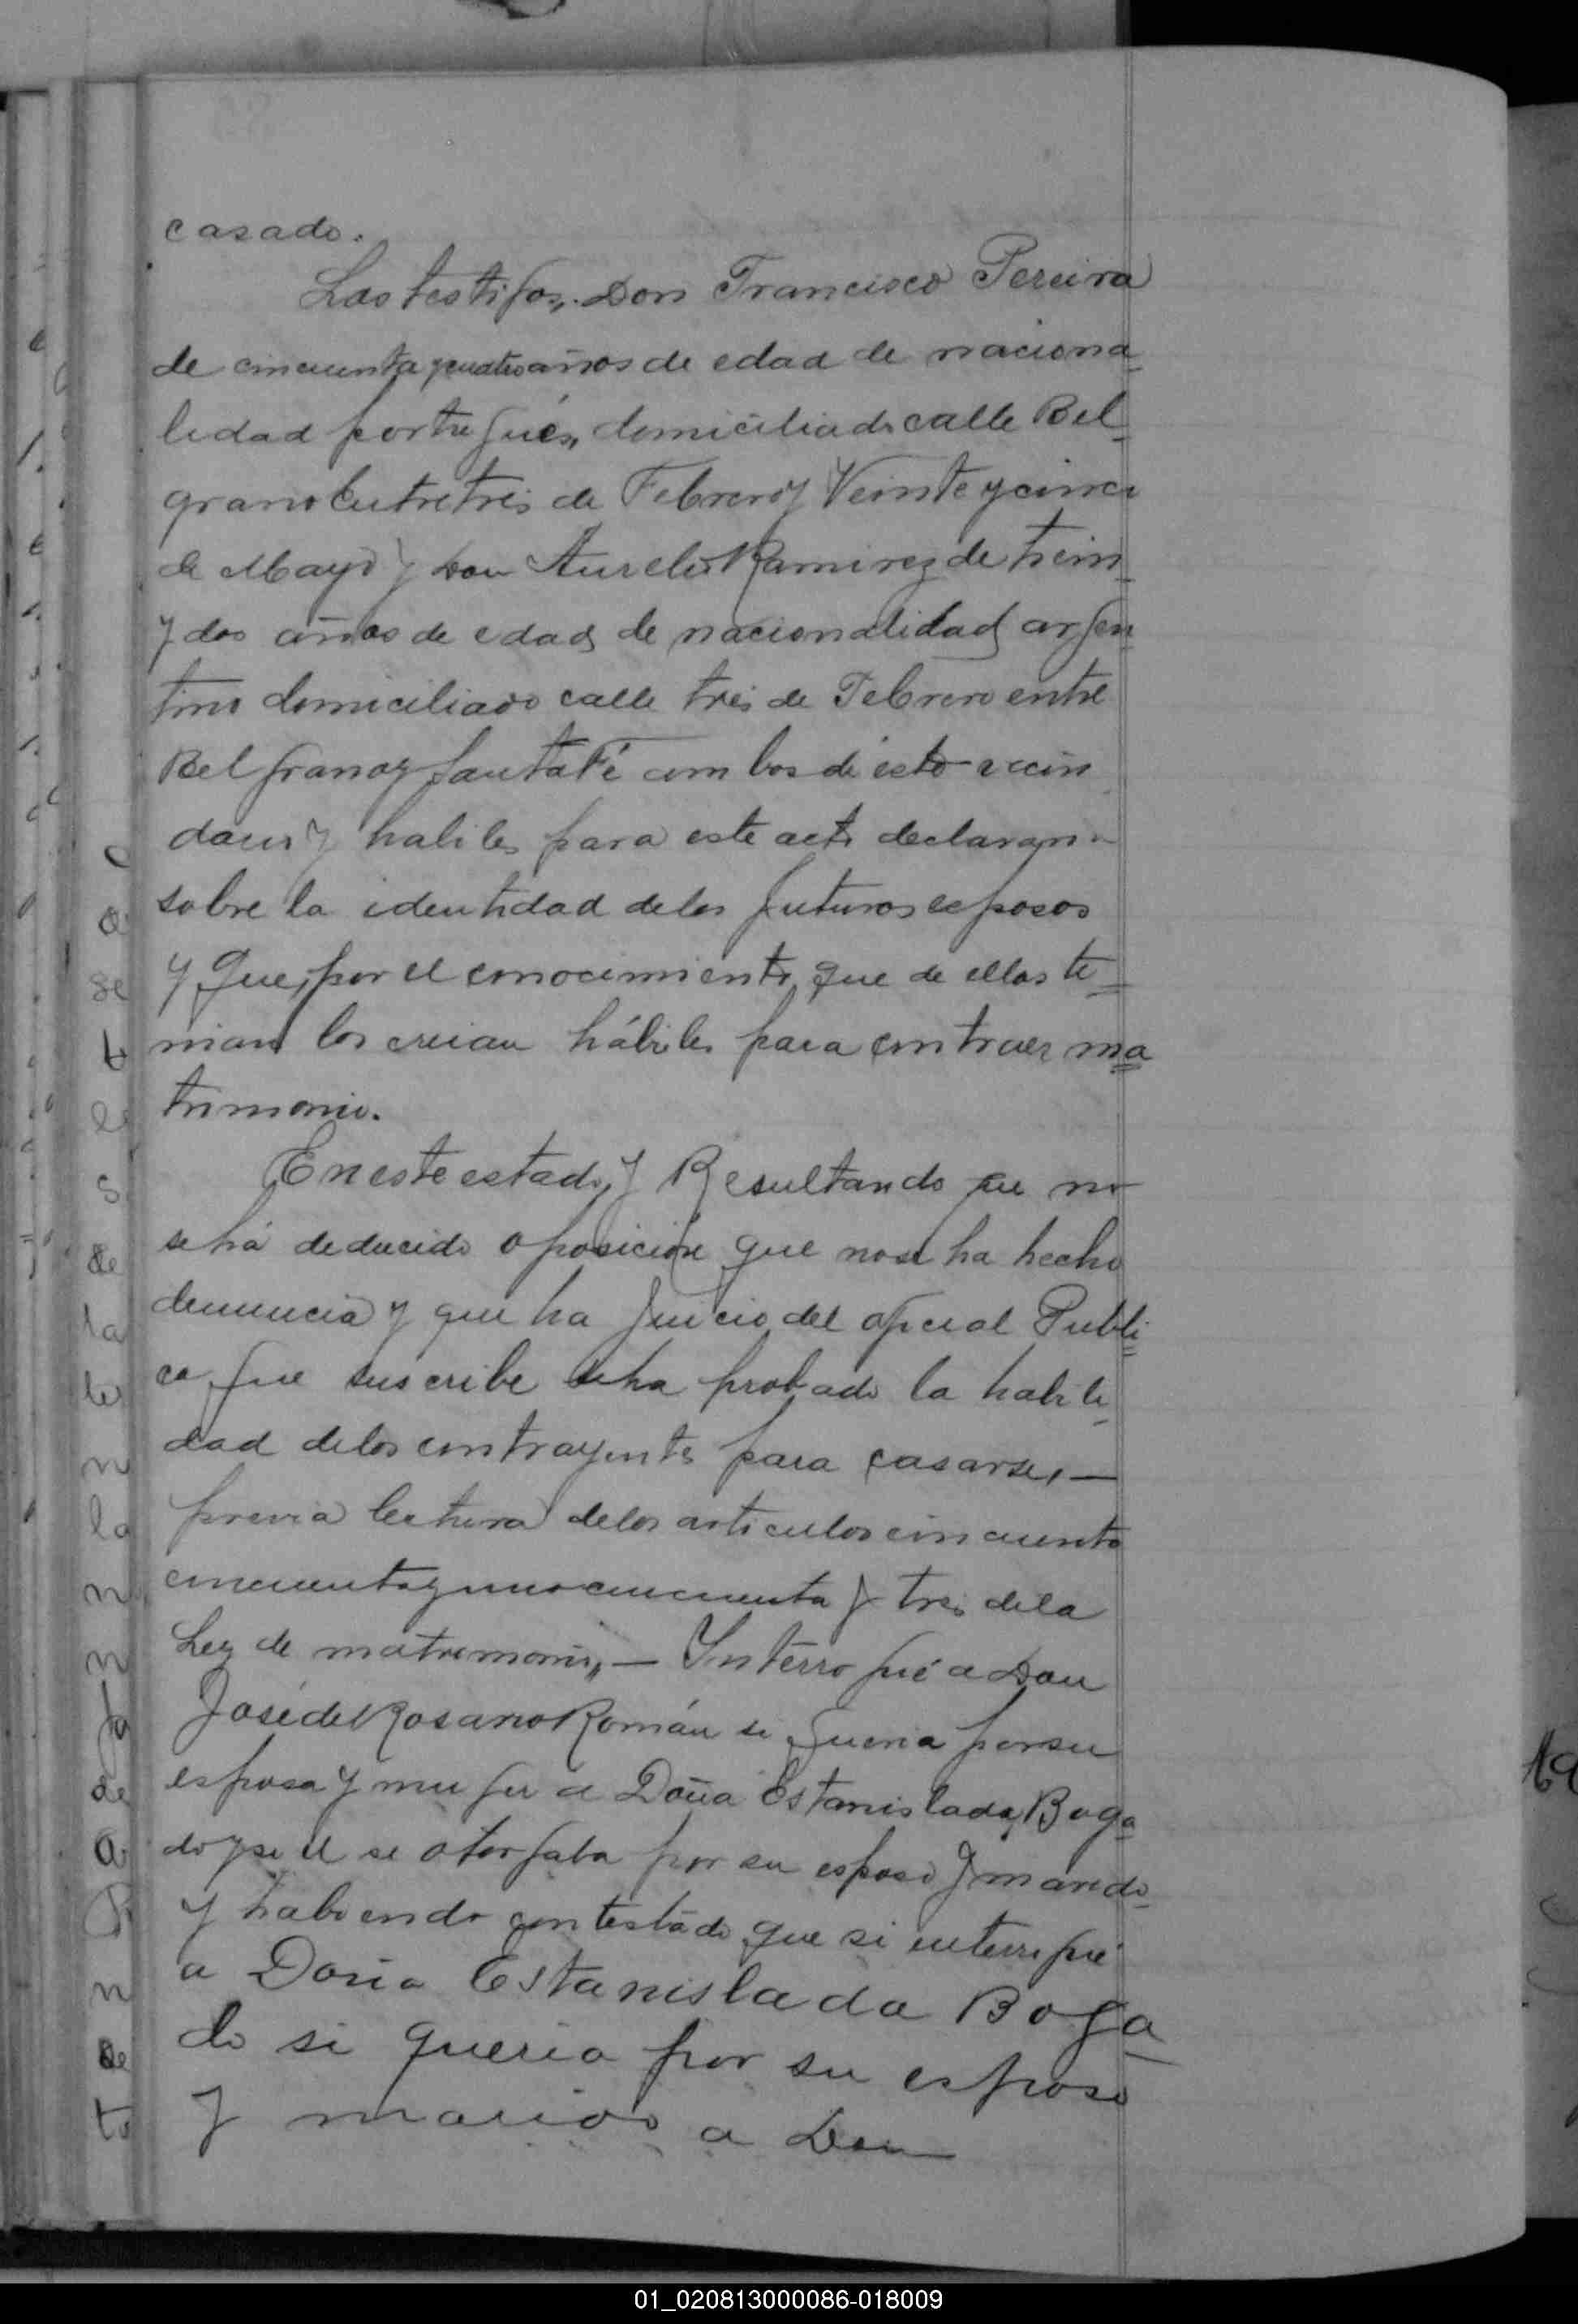 casado.
Los testigos, Don Francisco Pereira
de cincuenta y cuatro años de edad de naciona
lidad portugués, domiciliado calle Bel
grano Entre tres de Febrero y Veinte y cinco
de Mayo y Don Aurelio Ramirez de trein
y dos años de edad de nacionalidad argen
tino domiciliado calle tres de Febrero entre
Belgrano y Santa Fé ambos de esto vecin
dario y habiles para este acto declaran
sobre la identidad de los futuros esposos
y que, por el conocimiento que de ellos te
nian los creian hábiles para contraer ma
trimonio.
En este estado y Resultando que no
se há deducido oposición que no se ha hecho
denuncia y que ha juicio del oficial Publi
co que suscribe se ha probado la habili
dad de los contrayentes para casarse, —
previa lectura de los articulos cincuenta
cincuenta y uno cincuenta y tres de la
Ley de matrimonio, — Interrogué a Don
José del Rosario Román si queria por su
esposa y muger a Doña Estanislada Boga
do y si el se otorgaba por su esposo y marido
y habiendo contestado que si interrogué
a Doña Estanislada Boga
do si queria por su esposo
y marido a Don
01_020813000086-018009